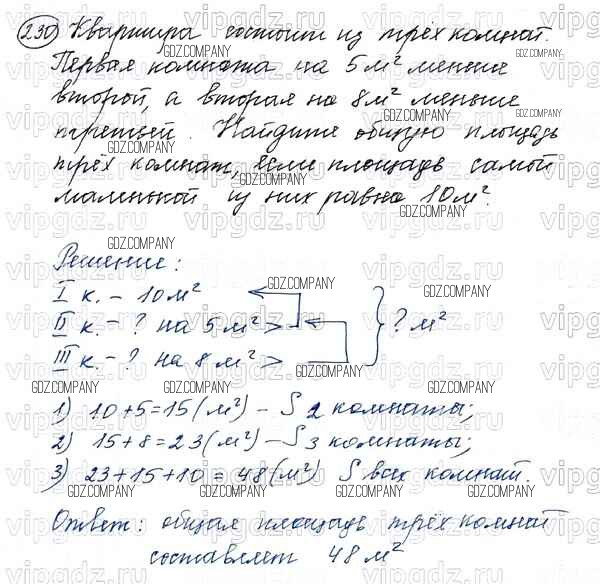 230 Квартира состоит из трёх комнат.
Первая комната на 5 м² меньше
второй, а вторая на 8 м² меньше
третьей. Найдите общую площадь
трёх комнат, если площадь самой
маленькой из них равна 10 м².
Решение:
I к. – 10 м²
II к. – ? на 5 м² >
III к. – ? на 8 м² >
? м²
1) 10+5=15 (м²) – S 2 комнаты;
2) 15+8=23 (м²) – S 3 комнаты;
3) 23+15+10 = 48 (м²) S всех комнат.
Ответ: общая площадь трёх комнат
составляет 48 м²
GDZ.COMPANY
vipgdz.ru